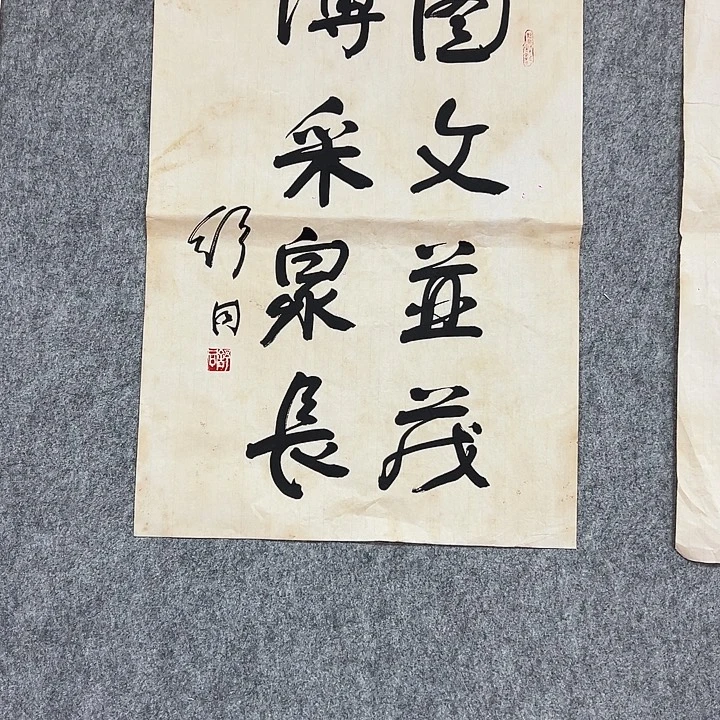 图文並茂
博采泉長
舒同